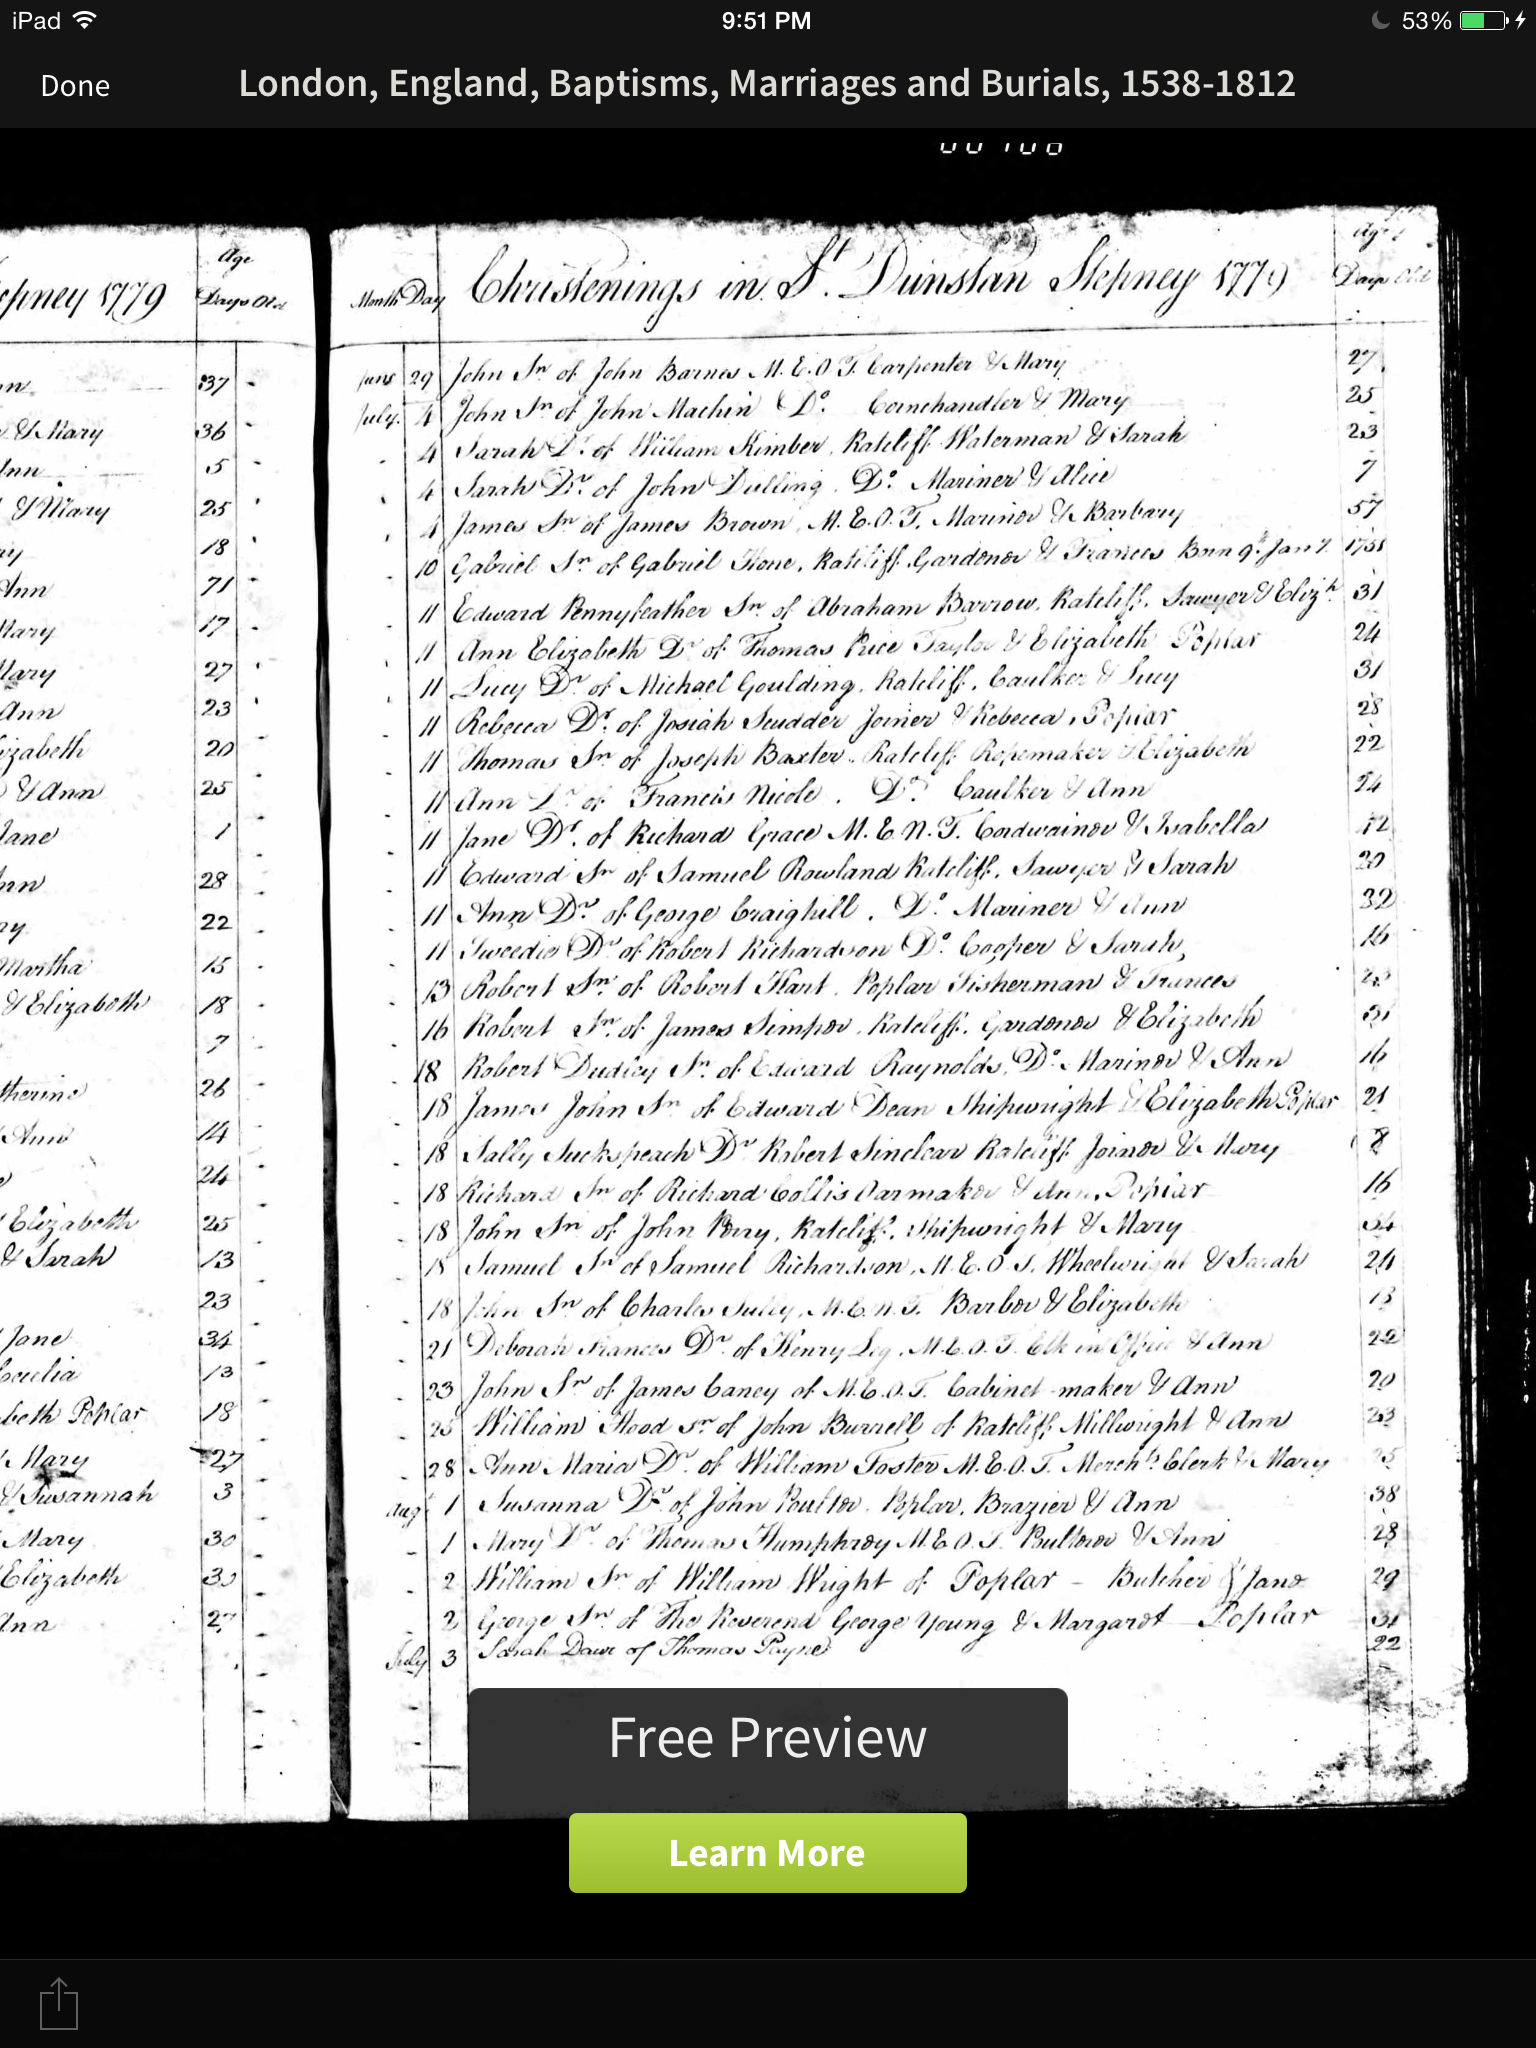 iPad
9:51 PM
53%
Done
London, England, Baptisms, Marriages and Burials, 1538-1812
Age
epney 1779 Days Old
nn 37
& Mary 36
Ann 5
& Mary 25
18
Ann 71
Mary 17
Mary 27
Ann 23
lizabeth 20
& Ann 25
Jane 1
nn 28
22
Martha 15
& Elizabeth 18
7
therine 26
Ann 14
24
Elizabeth 25
& Sarah 13
23
Jane 34
Cecilia 13
beth Poplar 18
Mary 27
& Susannah 3
Mary 30
Elizabeth
Ann 27
Age
Month Day Christenings in St. Dunstan Stepney 1779 Days Old
June 29 John Sn of John Barnes M.E.O.T. Carpenter & Mary 27
July 4 John Sn of John Machin Do. Cornchandler & Mary 25
4 Sarah Dr. of William Kimber, Ratcliff Waterman & Sarah 23
4 Sarah Dr. of John Dulling. Do. Mariner & Alice 7
4 James Sn of James Brown, M.E.O.T. Mariner & Barbary 57
10 Gabriel Sn of Gabriel Hone, Ratcliff Gardener & Frances Bnn 9th Jany. 1751
11 Edward Pennyfeather Sn. of Abraham Barrow, Ratcliff, Sawyer & Elizh 31
11 Ann Elizabeth Dr of Thomas Price Taylor & Elizabeth Poplar 24
11 Lucy Dr of Michael Goulding, Ratcliff, Caulker & Lucy 31
11 Rebecca Dr. of Josiah Scudder Joiner & Rebecca, Poplar 28
11 Thomas Sn of Joseph Baxter Ratcliff Ropemaker & Elizabeth 22
11 Ann Dr of Francis Nicole. Do. Caulker & Ann
11 Jane Dr. of Richard Grace M.E.N.T. Cordwainer & Isabella 12
11 Edward Sn of Samuel Rowland Ratcliff, Sawyer & Sarah 20
11 Ann Dr. of George Craighill. Do. Mariner & Ann 32
11 Sweedie Dr of Robert Richardson Do. Cooper & Sarah, 16
13 Robert Sn. of Robert Hart. Poplar Fisherman & Frances 23
16 Robert Sn. of James Simpor, Ratcliff, Gardener & Elizabeth 31
18 Robert Dudley Sn. of Edward Raynolds, Do. Mariner & Ann 16
18 James John Sn of Edward Dean Shipwright & Elizabeth Poplar 21
18 Sally Suckspeach Dr Robert Sinclear Ratcliff Joiner & Mary 8
18 Richard Sn of Richard Collis Oarmaker & Ann, Poplar 16
18 John Sn of John Perry, Ratcliff, Shipwright & Mary 34
18 Samuel Sn of Samuel Richardson, M.E.O.T. Wheelwright & Sarah 24
18 John Sn of Charles Sully, M.E.N.T. Barber & Elizabeth 13
21 Deborah Frances Dr. of Henry Leg, M.E.O.T. Clk in Office & Ann 22
23 John Sn of James Caney of M.E.O.T. Cabinet-maker & Ann 20
25 William Hood Sn of John Burrell of Ratcliff Millwright & Ann 23
28 Ann Maria Dr. of William Foster M.E.O.T. Merchts Clerk & Mary
Augt 1 Susanna Dr. of John Poulter. Poplar, Brazier & Ann 38
1 Mary Dr of Thomas Humphrey M.E.O.T. Poulterer & Ann 28
2 William Sn of William Wright of Poplar - Butcher & Jane 29
2 George Sn. of The Reverend George Young & Margaret Poplar 31
July 3 Sarah Daur of Thomas Payne 22
Free Preview
Learn More